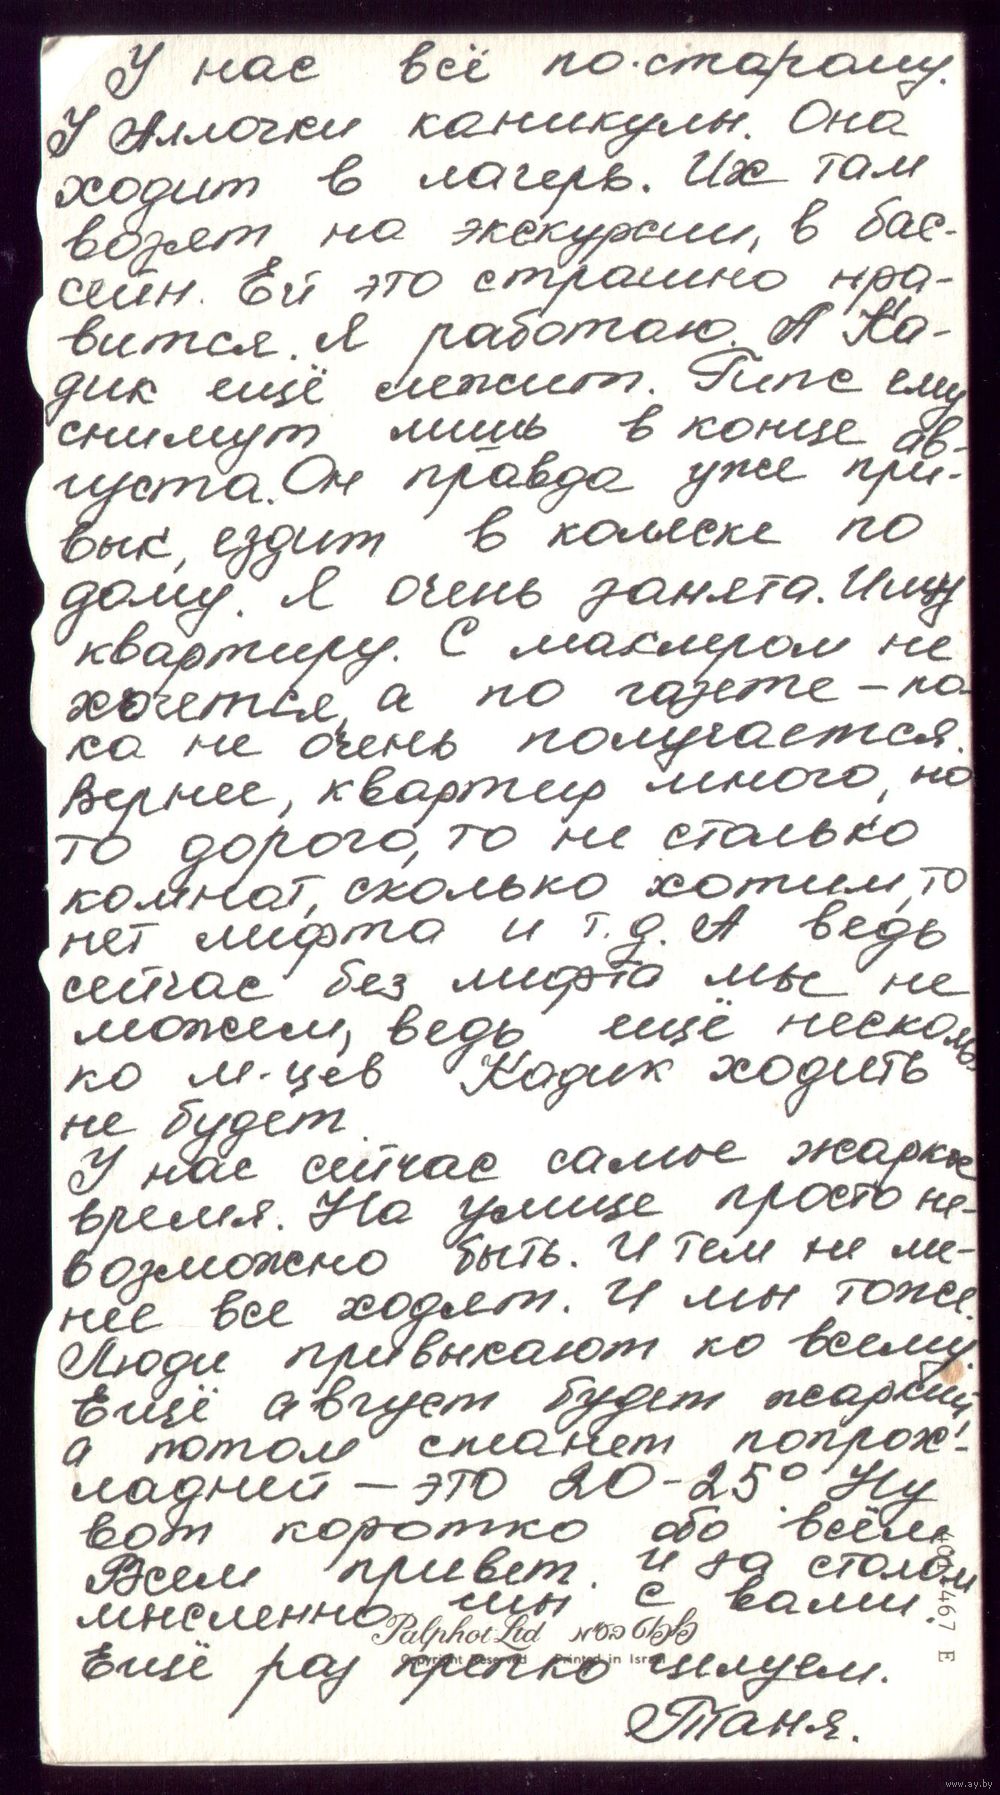 У нас всё по-старому.
У Аллочки каникулы. Она
ходит в лагерь. Их там
возят на экскурсии, в бас-
сейн. Ей это страшно нра-
вится. Я работаю. А Ка-
дик ещё лежит. Гипс ему
снимут лишь в конце ав-
густа. Он правда уже при-
вык, ездит в коляске по
дому. Я очень занята. Ищу
квартиру. С маклером не
хочется, а по газете – по-
ка не очень получается.
Вернее, квартир много, но
то дорого, то не столько
комнат, сколько хотим, то
нет лифта и т.д. А ведь
сейчас без лифта мы не
можем, ведь ещё несколь-
ко м-цев Кадик ходить
не будет.
У нас сейчас самое жаркое
время. На улице просто не-
возможно быть. И тем не ме-
нее все ходят. И мы тоже.
Люди привыкают ко всему.
Ещё август будет жаркий,
а потом станет попрох-
ладней – это 20-25° Ну
вот коротко обо всём.
Всем привет. И за столом
мысленно мы с вами.
Palphot Ltd פלפוט בע"מ
Copyright Reserved Printed in Israel
Ещё раз крепко целуем.
Таня.
467 E
www.ay.by